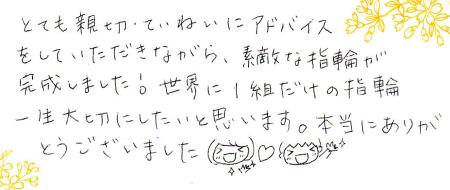 とても親切・ていねいにアドバイス
をしていただきながら、素敵な指輪が
完成しました！世界に1組だけの指輪
一生大切にしたいと思います。本当にありが
とうございました